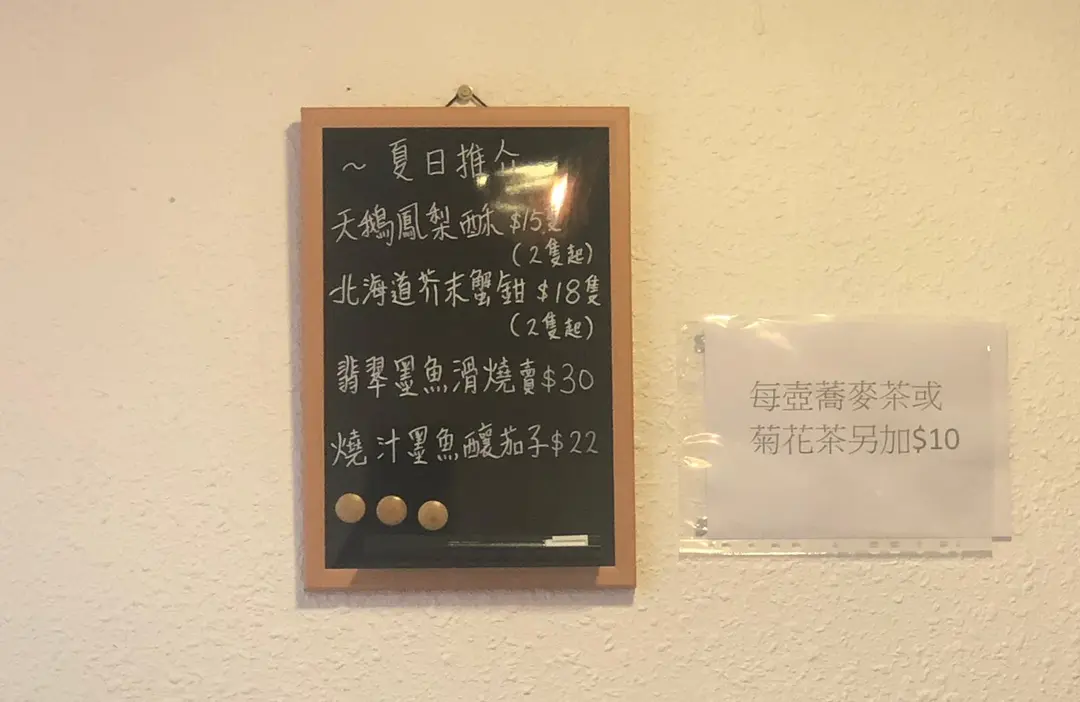 ~ 夏日推介 ~
天鵝鳳梨酥 $15隻
(2隻起)
北海道芥末蟹鉗 $18隻
(2隻起)
翡翠墨魚滑燒賣$30
燒汁墨魚釀茄子$22
每壺蕎麥茶或
菊花茶另加$10